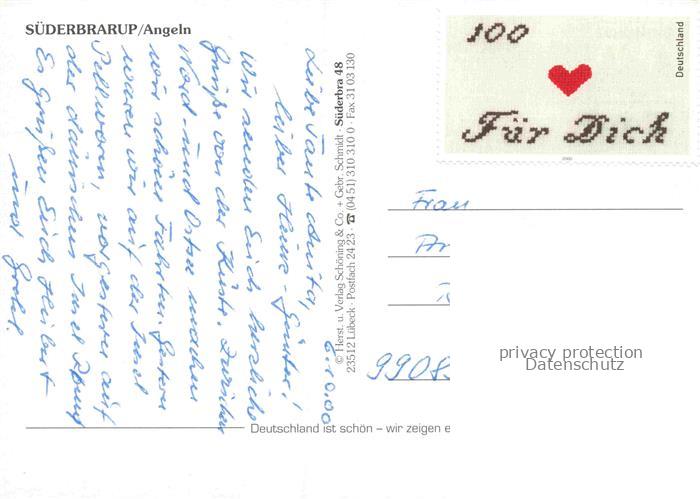 SÜDERBRARUP/Angeln
100
Deutschland
Für Dich
2000
6.10.00
Liebe Tante Anita,
lieber Heinz-Günter!
Wir senden Euch herzliche
Grüße von der Küste. Zwischen
Nord und Ostsee machen
wir schöne Fahrten. Gestern
waren wir auf der Insel
Pellworm, vorgestern auf
der dänischen Insel
Es grüßen Euch Herbert
und Gretel.
© Herst. u. Verlag Schöning & Co. + Gebr. Schmidt · Süderbra 48
23512 Lübeck · Postfach 24 23 · ☎ (04 51) 310 310 0 · Fax 31 03 130
Frau
9908
privacy protection
Datenschutz
Deutschland ist schön – wir zeigen e